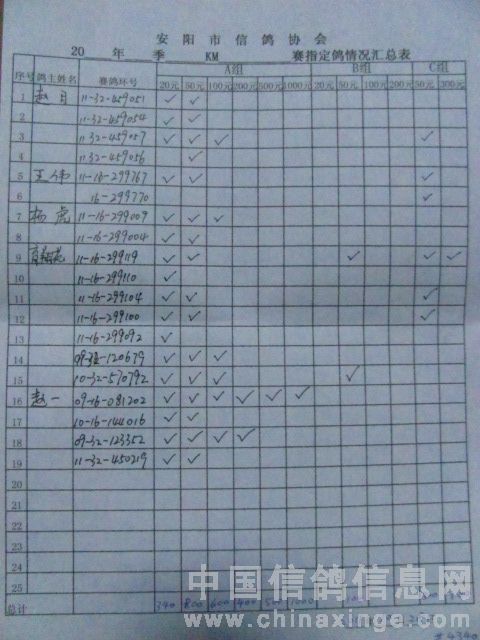 安阳市信鸽协会
20 年 季 KM 赛指定鸽情况汇总表
序号 鸽主姓名 赛鸽环号 A组 B组 C组
20元 50元 100元 200元 500元 1000元 20元 50元 100元 50元 300元
1 赵日 11-32-459051 ✓ ✓
2 11-32-459054 ✓ ✓
3 11 32-459057 ✓ ✓ ✓ ✓
4 11 32-459056 ✓
5 王伟 11-16-299767 ✓ ✓ ✓
6 16-299770 ✓
7 杨虎 11-16-299009 ✓ ✓ ✓
8 11-16-299004 ✓ ✓
9 11-16-299119 ✓ ✓ ✓ ✓ ✓
10 11-16-299110 ✓
11 11-16-299104 ✓ ✓ ✓
12 11-16-299100 ✓ ✓ ✓
13 11-16-299092 ✓
14 09-32-120679 ✓ ✓ ✓
15 10-32-570792 ✓ ✓ ✓ ✓
16 赵一 09-16-081202 ✓ ✓ ✓ ✓ ✓ ✓
17 10-16-144016 ✓ ✓
18 09-32-123352 ✓ ✓ ✓ ✓
19 11-32-450219 ✓ ✓
20
21
22
23
24
25
总计 340 800 600 400 500 1000
4340
中国信鸽信息网
www.chinaxinge.com